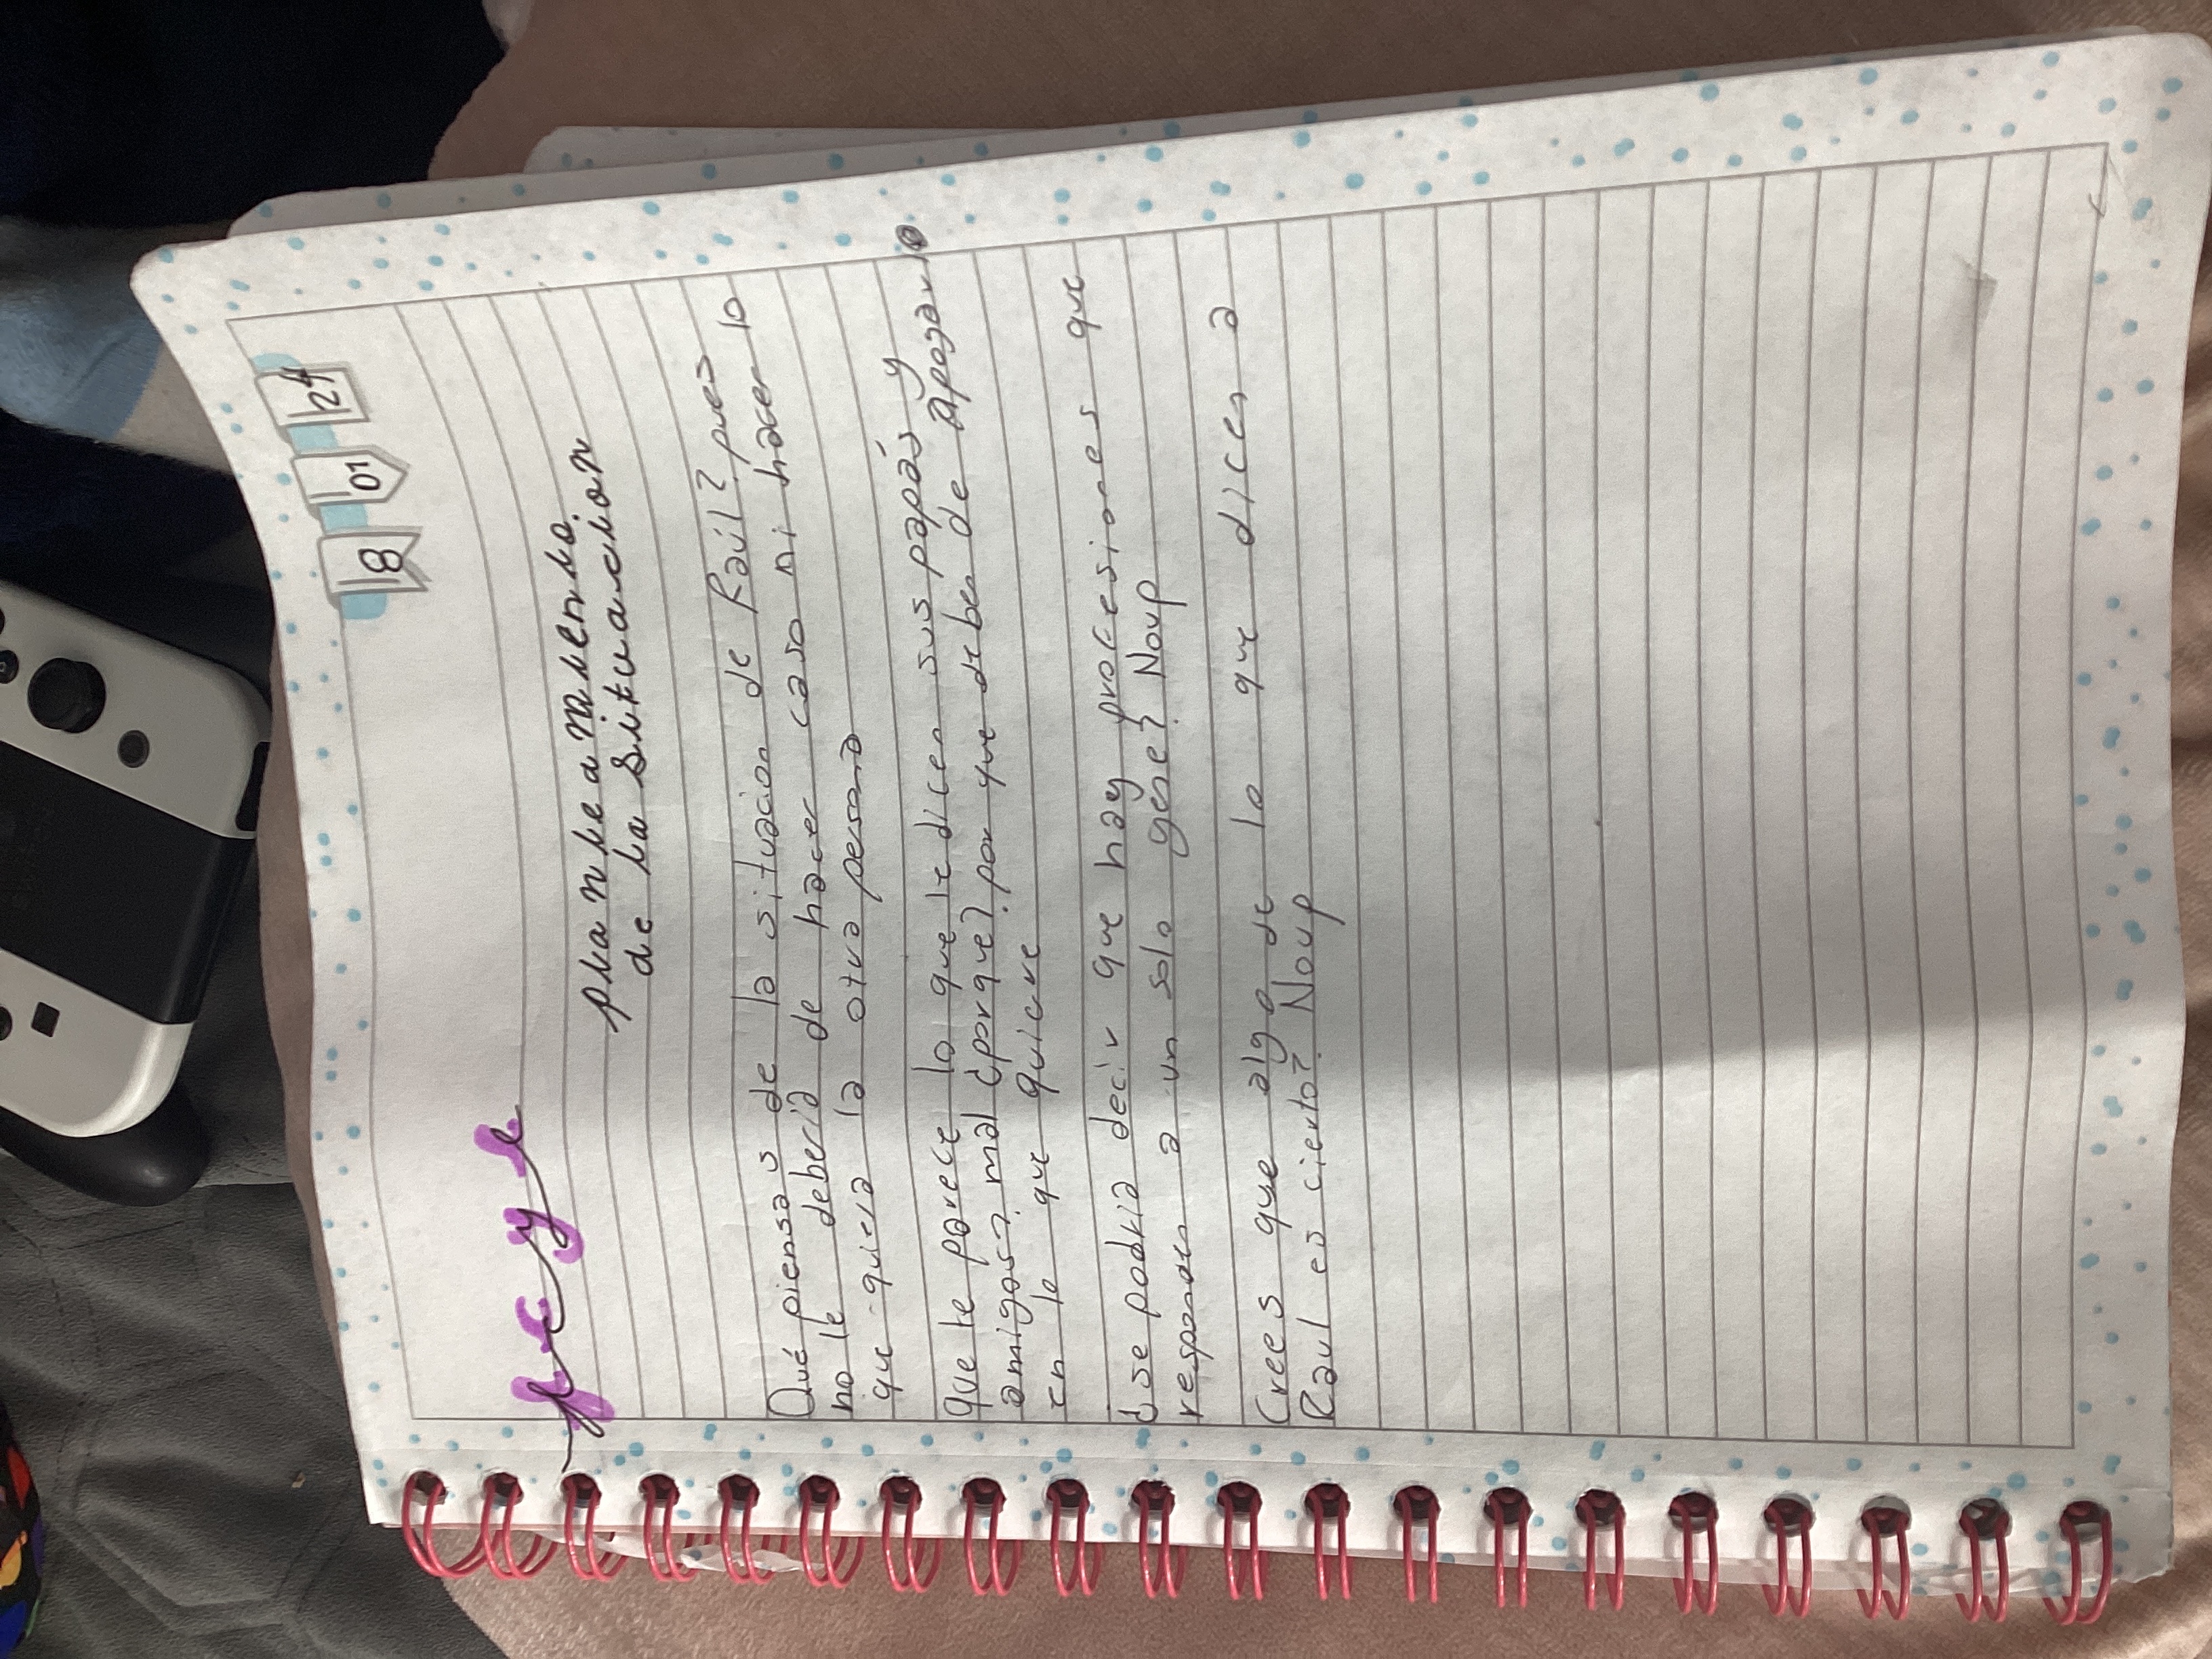 18 01 24
fcye
planteamiento
de la situacion
Qué piensas de la situacion de Raúl? pues lo
no le deberia de hacer caso ni hacer lo
que quiera la otra persona
que te parece lo que le dicen sus papás y
amigos? mal ¿porque? por que deben de apoyarlo
en lo que quiere
¿se podria decir que hay procesiones que
responden a un solo gene? Noup
Crees que algo de lo que dicen a
Raul es cierto? Noup